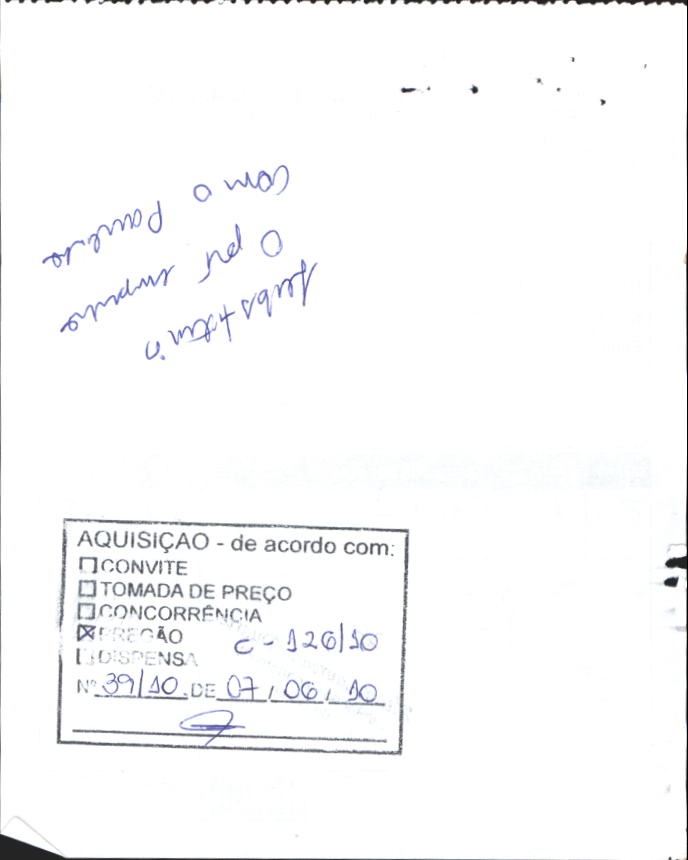 Substituir
O pré empenho
com o
AQUISIÇAO - de acordo com:
☐ CONVITE
☐ TOMADA DE PREÇO
☐ CONCORRÊNCIA
☒ PREGÃO C - 126/10
☐ DISPENSA
Nº 39/10 DE 07 / 06 / 10